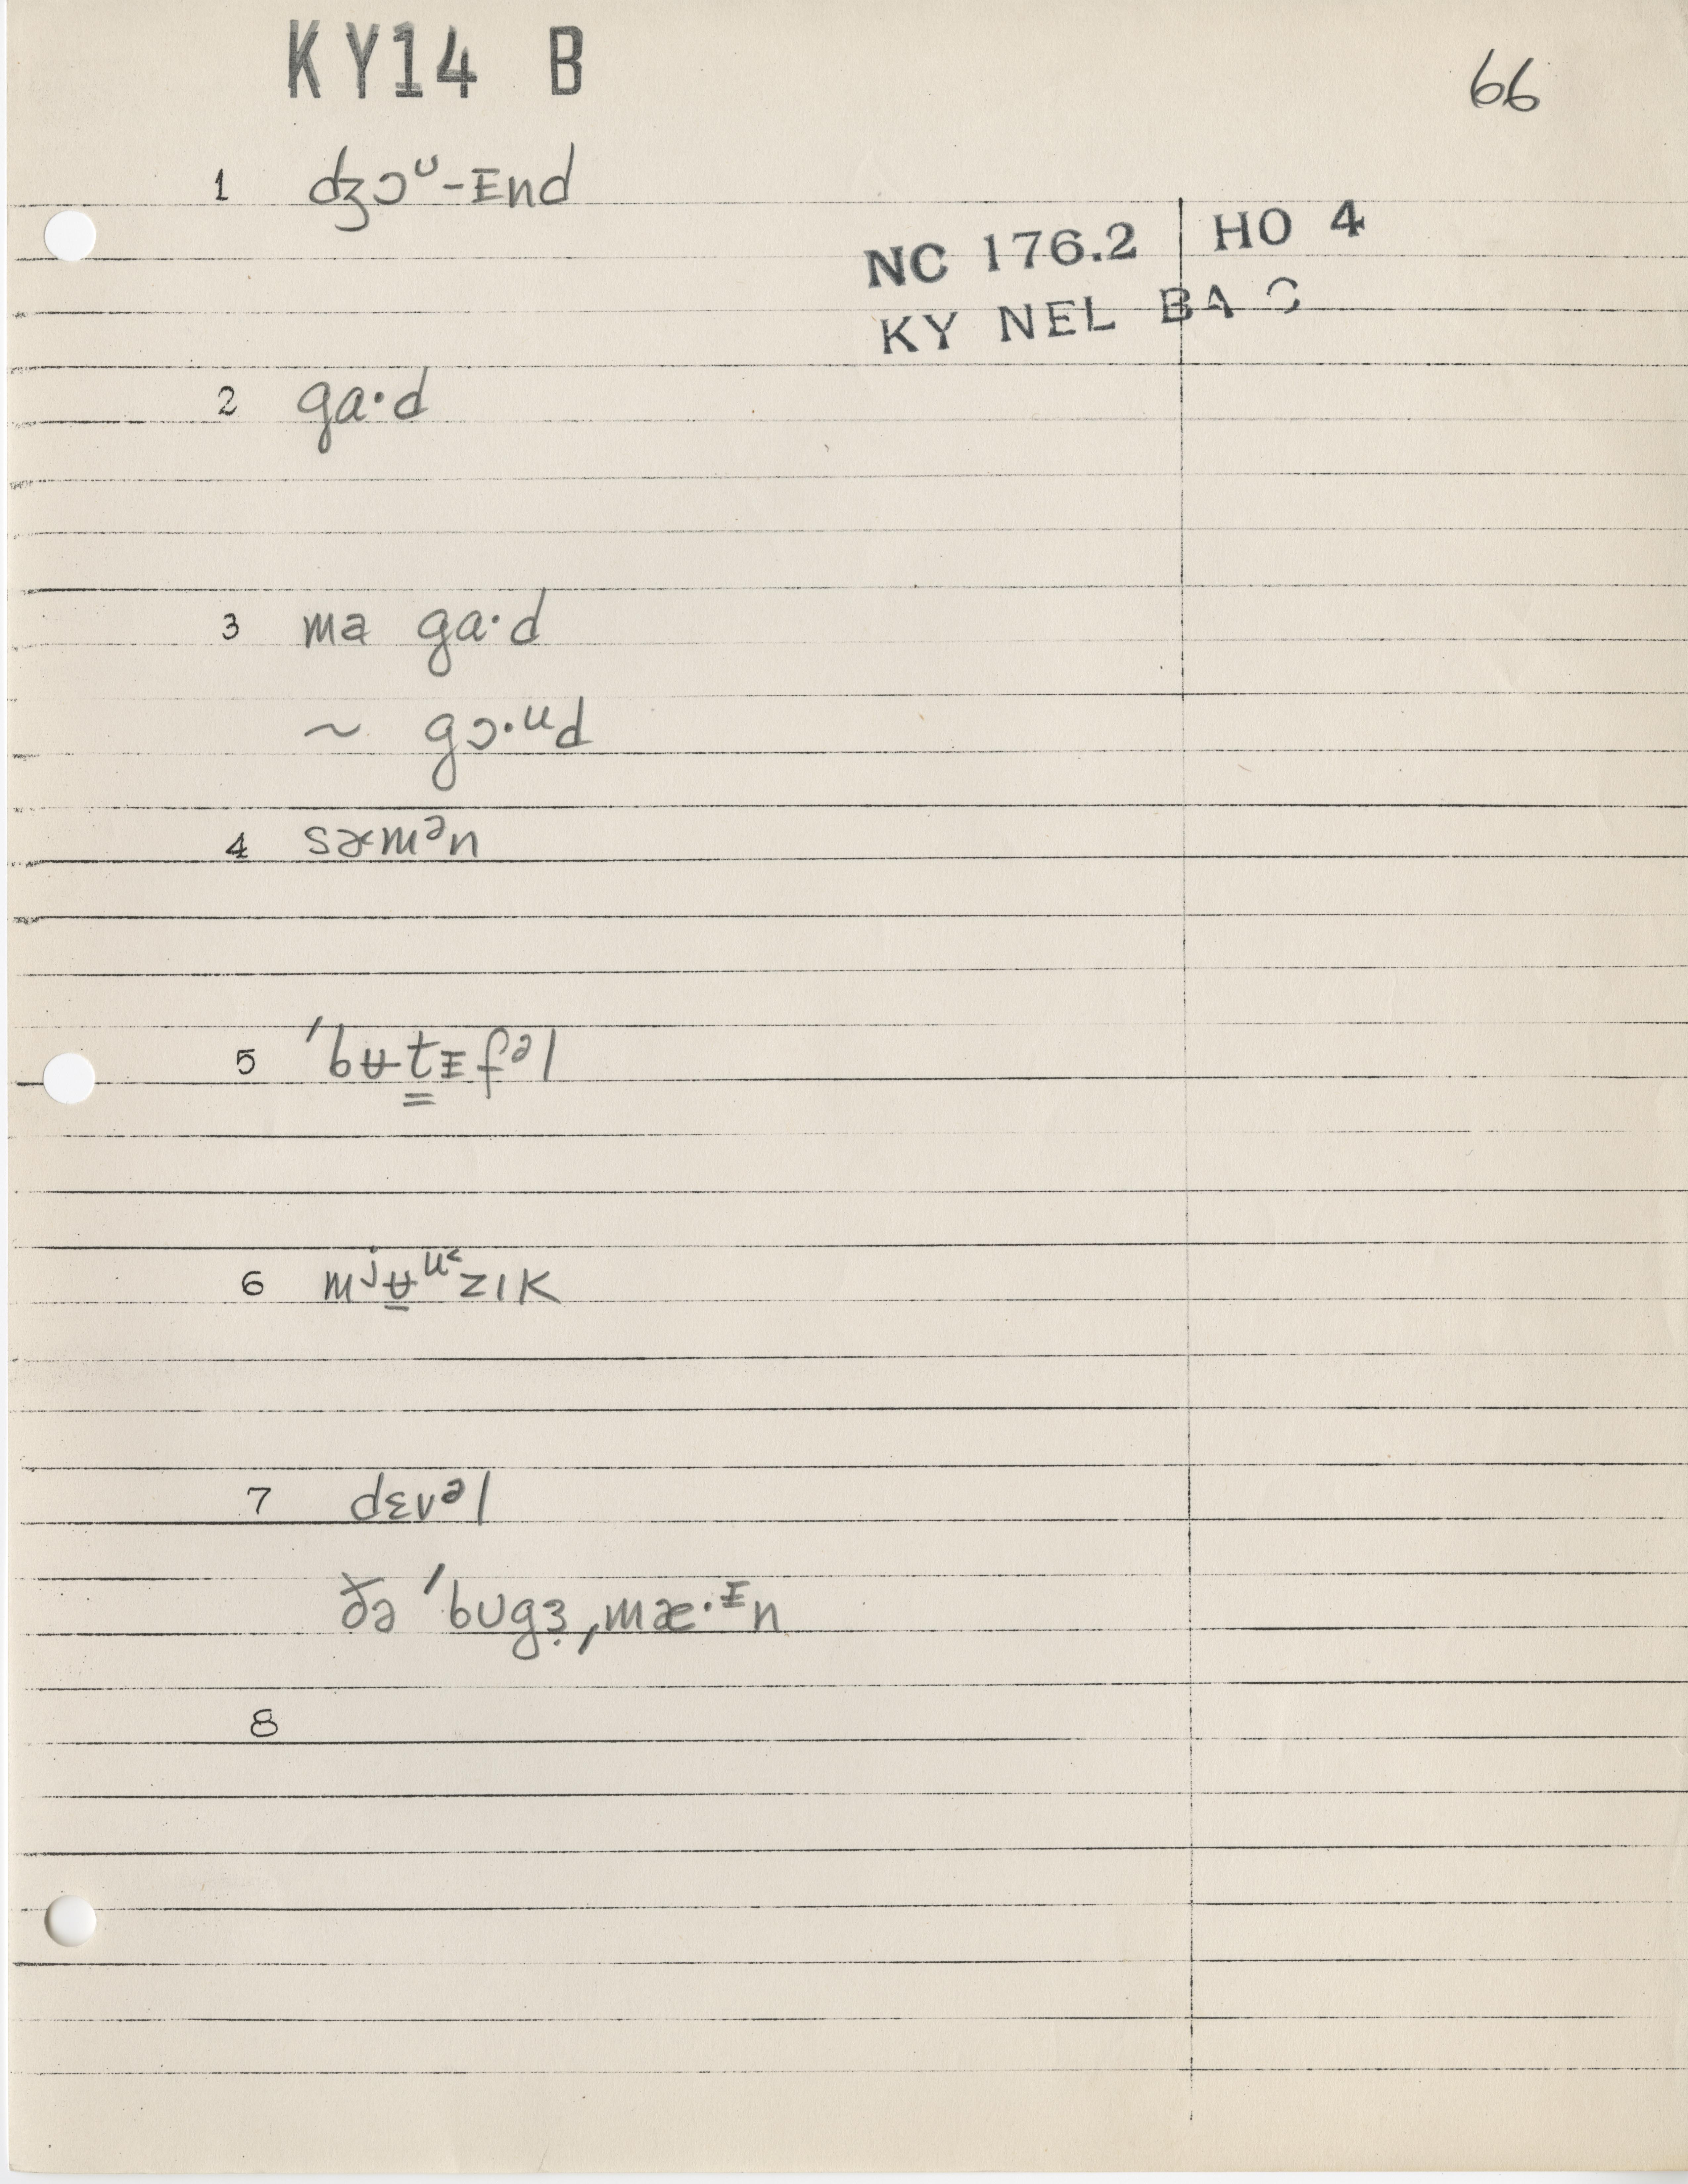 KY14 B
66
1 ʤɔᶷ-ᵻnd
NC 176.2 | HO 4
KY NEL BA
2 ga·d
3 ma ga·d
~ gɔ·ᵘd
4 sæmᵊn
5 ˈbʉt̳ᵻfᵊl
6 mʲʉ̲ᵘ˂zɪk
7 dɛvᵊl
ðə ˈbʊgɜ̣ˌmæ·ᵻn
8